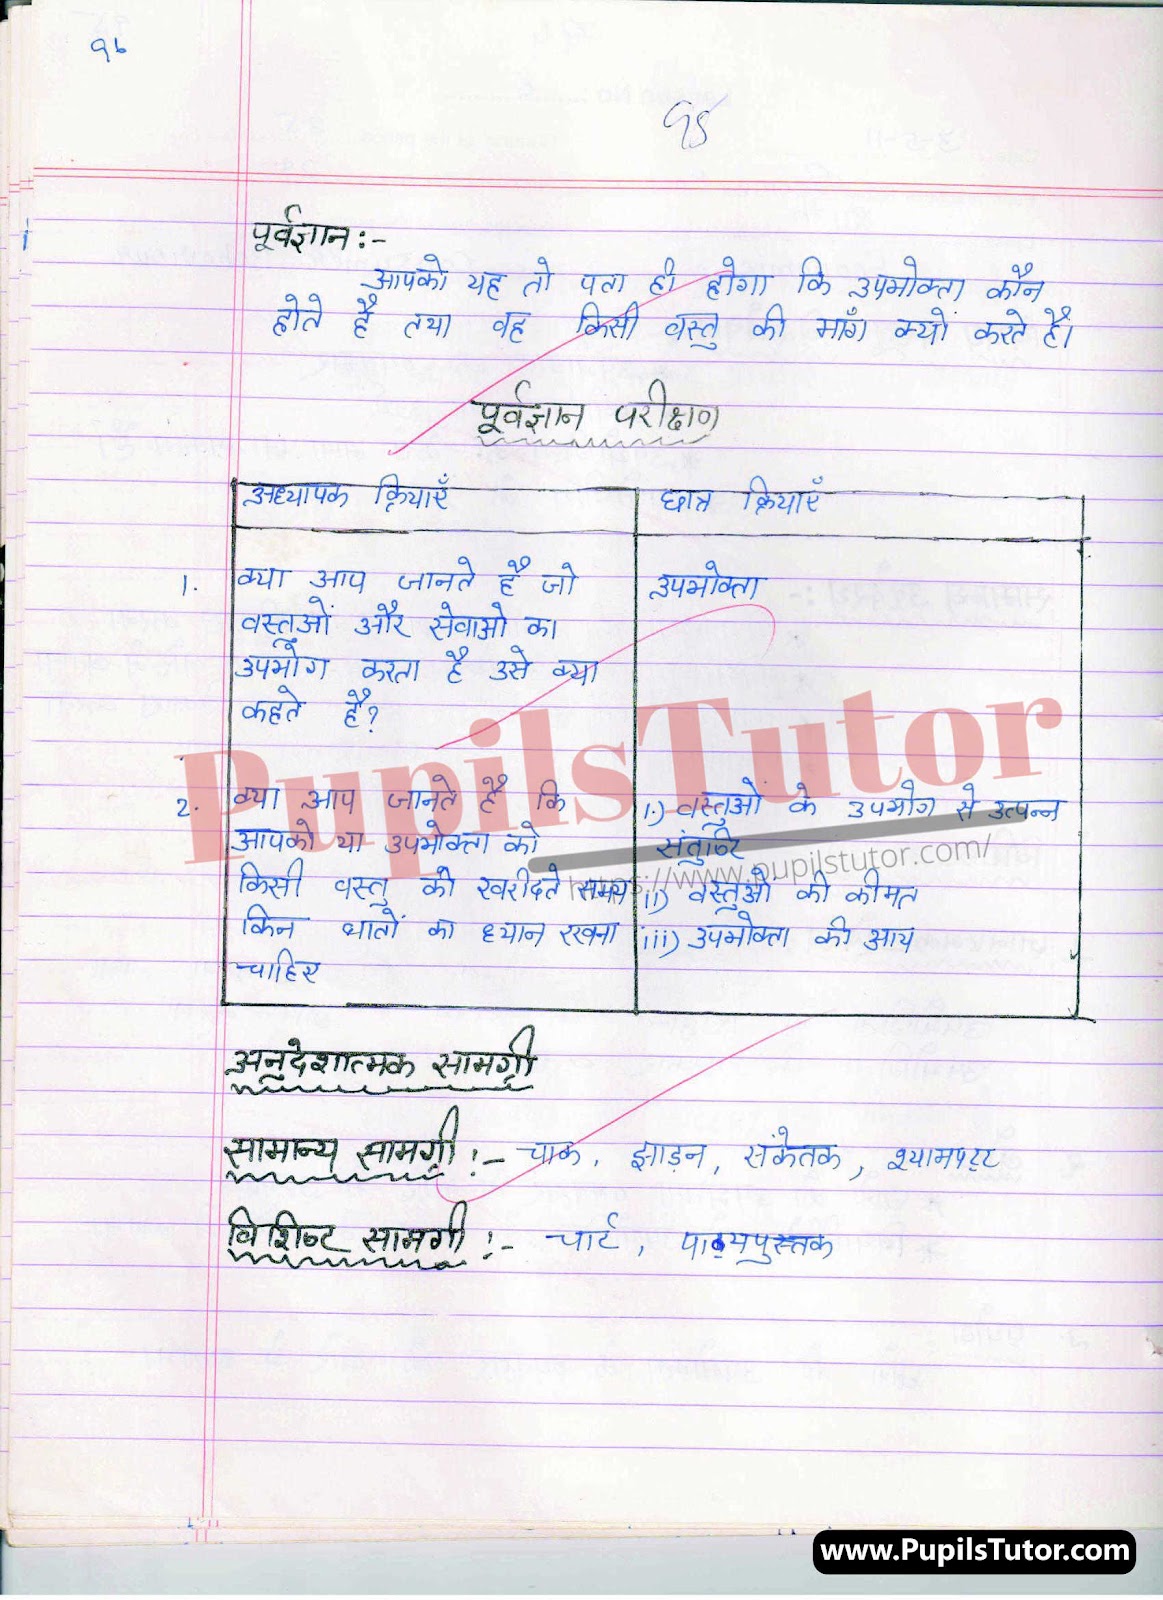 96
95
पूर्वज्ञान:-
आपको यह तो पता ही होगा कि उपभोक्ता कौन
होते है तथा वह किसी वस्तु की माँग क्यों करते है।
पूर्वज्ञान परीक्षण
अध्यापक क्रियाएँ
छात्र क्रियाएँ
1. क्या आप जानते है जो
वस्तुओं और सेवाओ का
उपभोग करता है उसे क्या
कहते है?
उपभोक्ता
2. क्या आप जानते है कि
आपको या उपभोक्ता को
किसी वस्तु को खरीदते समय
किन बातों का ध्यान रखना
चाहिए
i.) वस्तुओं के उपभोग से उत्पन्न
संतुष्टि
ii) वस्तुओ की कीमत
iii) उपभोक्ता की आय
PupilsTutor
https://www.pupilstutor.com/
अनुदेशात्मक सामग्री
सामान्य सामग्री :- चाक, झाड़न, संकेतक, श्यामपट्ट
विशिष्ट सामग्री :- चार्ट, पाठ्यपुस्तक
www.PupilsTutor.com